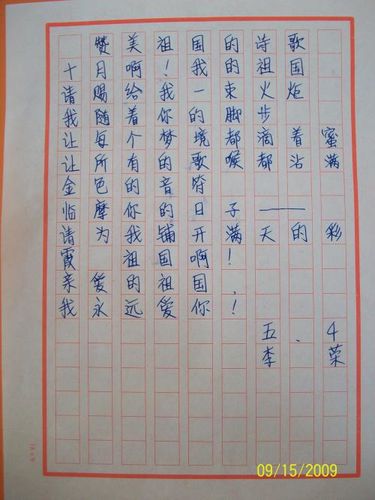 赞美祖国的诗歌
十月啊！我的祖国
请赐给我一束火炬
我随着你的脚步
让每个梦境都滴着蜜
让所有的歌喉都沾满
金色的音符
临摩你的日子——
请为我铺开满天的彩
霞 祖国啊！
亲爱的祖国
我永远爱你！
五、4
李荣
09/15/2009